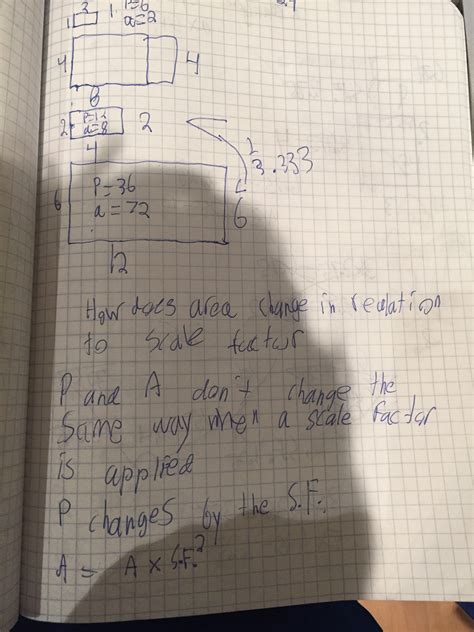 2 P=6
1 1 a=2
4 4
8
2 P=12 2
a=8
4
1
3.333
P=36
6 a=72 6
12
How does area change in realation
to scale factor
P and A don't change the
same way when a scale factor
is applied
P changes by the S.F.
A = A x S.F.²